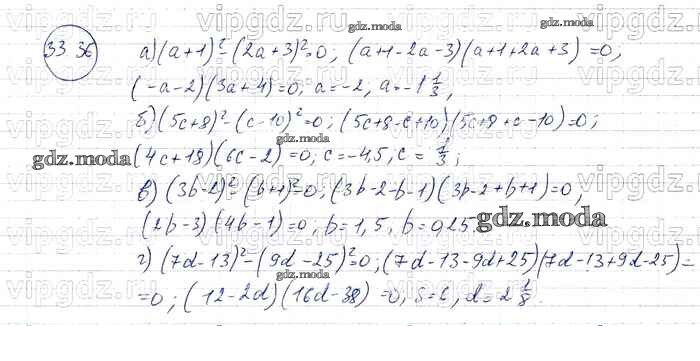 33 36
а) (a+1)²-(2a+3)²=0; (a+1-2a-3)(a+1+2a+3)=0;
(-a-2)(3a+4)=0; a=-2, a=-1 1/3;
б) (5c+8)²-(c-10)²=0; (5c+8-c+10)(5c+8+c-10)=0;
(4c+18)(6c-2)=0; c=-4,5, c=1/3;
в) (3b-2)²-(b+1)²=0; (3b-2-b-1)(3b-2+b+1)=0;
(2b-3)(4b-1)=0; b=1,5, b=0,25.
г) (7d-13)²-(9d-25)²=0; (7d-13-9d+25)(7d-13+9d-25)=
=0; (12-2d)(16d-38)=0, s=6, d=2 1/8.
vipgdz.com
gdz.moda